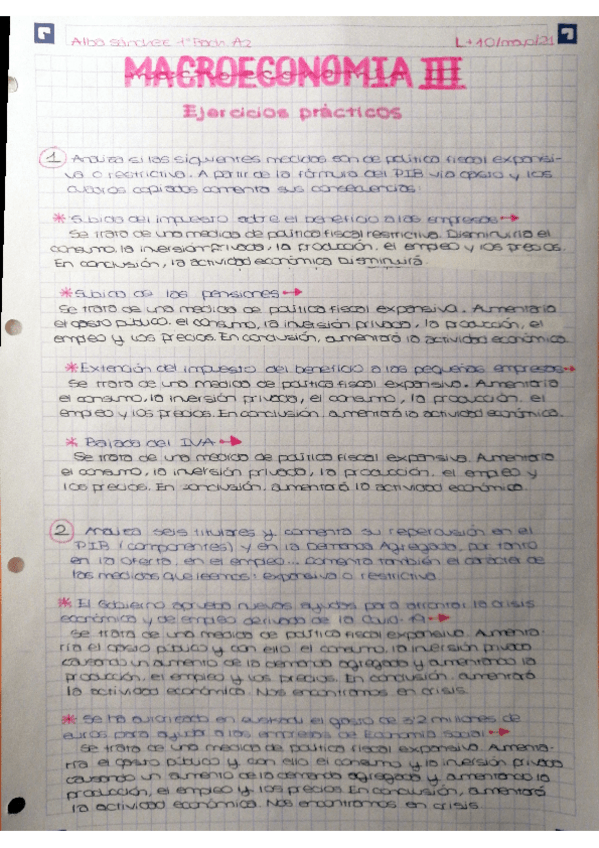 Alba Sánchez 1º Bach. A2
L+10/may/21
MACROECONOMIA III
Ejercicios prácticos
1 Analiza si las siguientes medidas son de política fiscal expansi-
va o restrictiva. A partir de la fórmula del PIB vía gasto y los
cuadros copiados comenta sus consecuencias:
* Subida del impuesto sobre el beneficio a las empresas →
Se trata de una medida de política fiscal restrictiva. Disminuiría el
consumo, la inversión privada, la producción, el empleo y los precios.
En conclusión, la actividad económica Disminuirá.
* Subida de las pensiones →
Se trata de una medida de política fiscal expansiva. Aumentaría
el gasto público, el consumo, la inversión privada, la producción, el
empleo y los precios. En conclusión, aumentará la actividad económica.
* Extención del impuesto del beneficio a las pequeñas empresas →
Se trata de una medida de política fiscal expansiva. Aumentaría
el consumo, la inversión privada, el consumo, la producción, el
empleo y los precios. En conclusión, aumentará la actividad económica.
* Bajada del IVA →
Se trata de una medida de política fiscal expansiva. Aumentaría
el consumo, la inversión privada, la producción, el empleo y
los precios. En conclusión, aumentará la actividad económica.
2 Analiza seis titulares y comenta su repercusión en el
PIB (componentes) y en la Demanda Agregada, por tanto
en la oferta, en el empleo... comenta también el carácter de
las medidas que leemos: expansiva o restrictiva
* El Gobierno aprueba nuevas ayudas para afrontar la crisis
económica y de empleo derivada de la Covid-19 →
Se trata de una medida de política fiscal expansiva. Aumenta-
ría el gasto público y con ello el consumo, la inversión privada
causando un aumento de la demanda agregada y aumentando la
producción, el empleo y los precios. En conclusión, aumentará
la actividad económica. Nos encontramos en crisis.
* Se ha publicado en euskadi el gasto de 3'2 millones de
euros para ayuda a las empresas de Economía Social →
Se trata de una medida de política fiscal expansiva. Aumenta-
ría el gasto público y con ello el consumo y la inversión privada
causando un aumento de la demanda agregada y aumentando la
producción, el empleo y los precios. En conclusión, aumentará
la actividad económica. Nos encontramos en crisis.